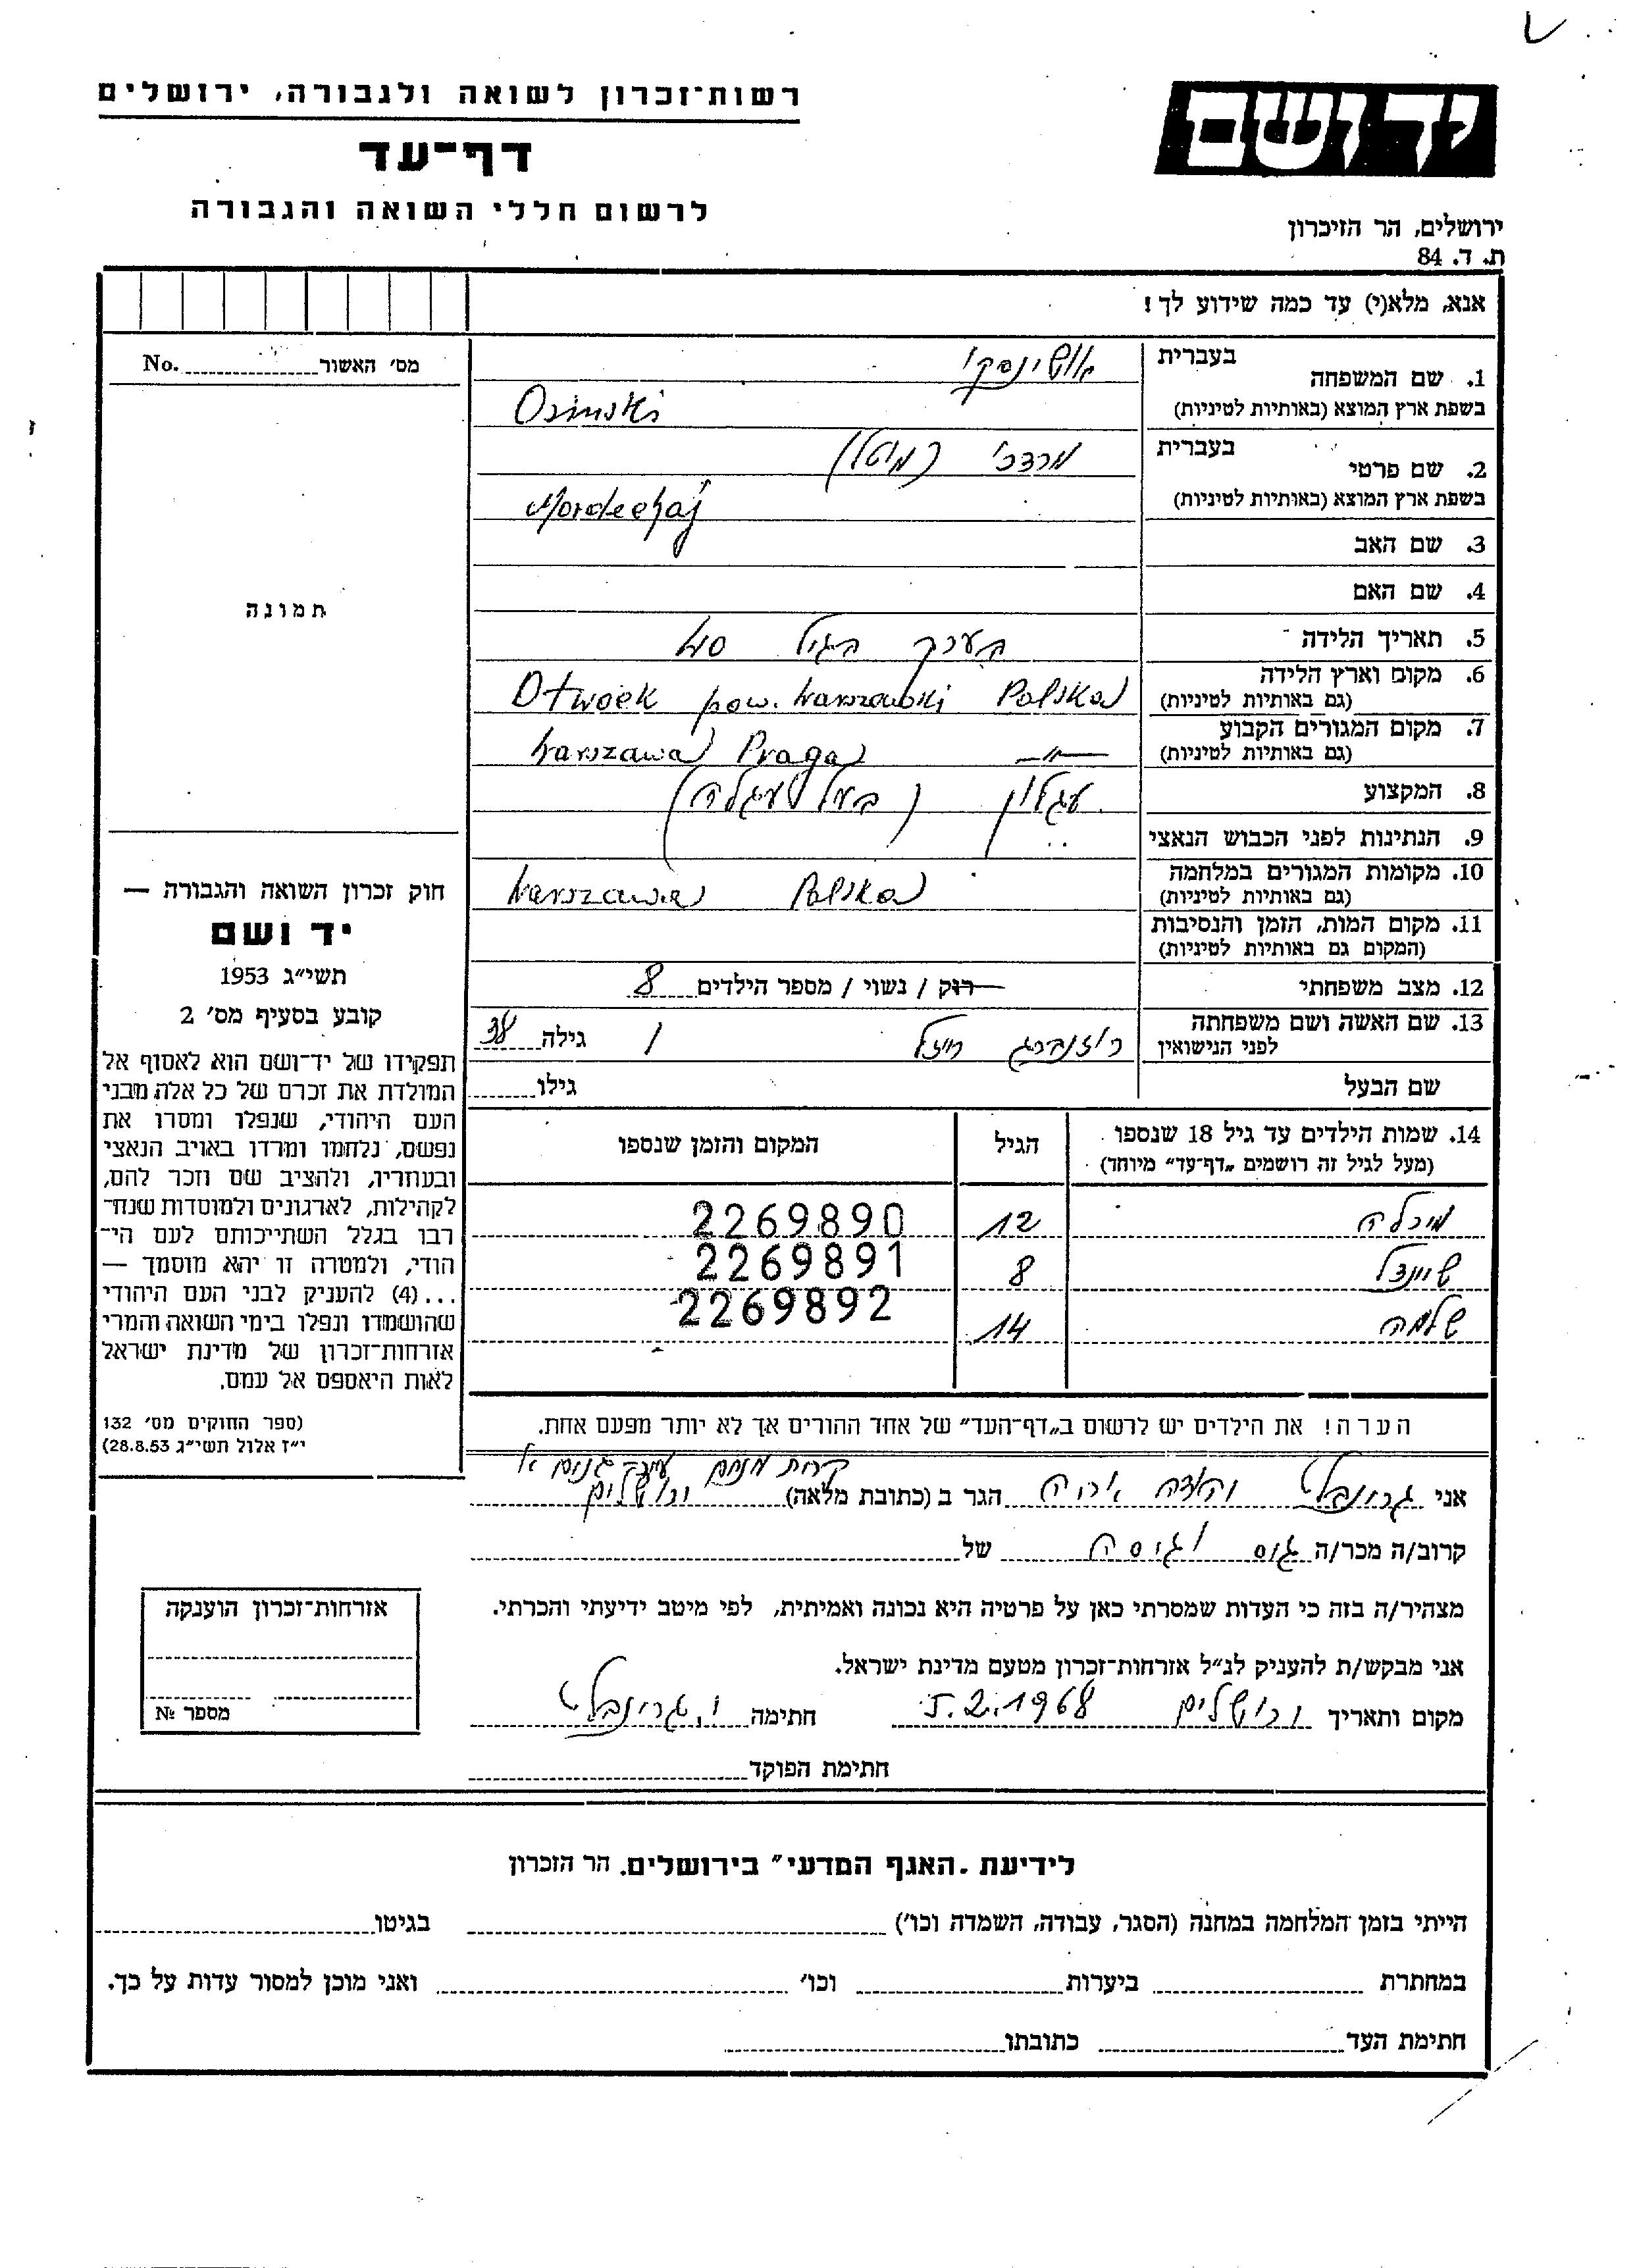 רשות־זכרון לשואה ולגבורה, ירושלים
דף־עד
לרשום חללי השואה והגבורה
יד ושם
ירושלים, הר הזיכרון
ת. ד. 84
אנא, מלא(י) עד כמה שידוע לך!
מס׳ האשור No.
תמונה
חוק זכרון השואה והגבורה —
יד ושם
תשי״ג 1953
קובע בסעיף מס׳ 2
תפקידו של יד־ושם הוא לאסוף אל
המולדת את זכרם של כל אלה מבני
העם היהודי, שנפלו ומסרו את
נפשם, נלחמו ומרדו באויב הנאצי
ובעוזריו, ולהציב שם וזכר להם,
לקהילות, לארגונים ולמוסדות שנח־
רבו בגלל השתייכותם לעם הי־
הודי, ולמטרה זו יהא מוסמך —
...(4) להעניק לבני העם היהודי
שהושמדו ונפלו בימי השואה והמרי
אזרחות־זכרון של מדינת ישראל
לאות היאספם אל עמם.
(ספר החוקים מס׳ 132
י״ז אלול תשי״ג 28.8.53)
בעברית אושינסקי
1. שם המשפחה
בשפת ארץ המוצא (באותיות לטיניות) Osinski
בעברית מרדכי (מוטל)
2. שם פרטי
בשפת ארץ המוצא (באותיות לטיניות) Mordechaj
3. שם האב
4. שם האם
5. תאריך הלידה בערך בגיל 40
6. מקום וארץ הלידה Otwock pow. Warszawski Polska
(גם באותיות לטיניות)
7. מקום המגורים הקבוע Warszawa Praga —"—
(גם באותיות לטיניות)
8. המקצוע עגלון (בעל עגלה)
9. הנתינות לפני הכבוש הנאצי
10. מקומות המגורים במלחמה Warszawa Polska
(גם באותיות לטיניות)
11. מקום המות, הזמן והנסיבות
(המקום גם באותיות לטיניות)
12. מצב משפחתי רוק / נשוי / מספר הילדים 8
13. שם האשה ושם משפחתה רוזנברג רייזל / גילה 38
לפני הנישואין
שם הבעל גילו
14. שמות הילדים עד גיל 18 שנספו הגיל המקום והזמן שנספו
(מעל לגיל זה רושמים „דף־עד״ מיוחד)
מיכלה 12 2269890
שיינדל 8 2269891
שלמה 14 2269892
הערה! את הילדים יש לרשום ב„דף־העד״ של אחד ההורים אך לא יותר מפעם אחת.
קרית מנחם עיר גנים א׳
אני גרינבלט הגר ב (כתובת מלאה) ירושלים
קרוב/ה מכר/ה גיס וגיסה של
מצהיר/ה בזה כי העדות שמסרתי כאן על פרטיה היא נכונה ואמיתית, לפי מיטב ידיעתי והכרתי.
אני מבקש/ת להעניק לנ״ל אזרחות־זכרון מטעם מדינת ישראל.
מקום ותאריך ירושלים 5.2.1968 חתימה י. גרינבלט
חתימת הפוקד
אזרחות־זכרון הוענקה
מספר №
לידיעת „האגף המדעי״ בירושלים, הר הזכרון
הייתי בזמן המלחמה במחנה (הסגר, עבודה, השמדה וכו׳) בגיטו
במחתרת ביערות וכו׳ ואני מוכן למסור עדות על כך.
חתימת העד כתובתו